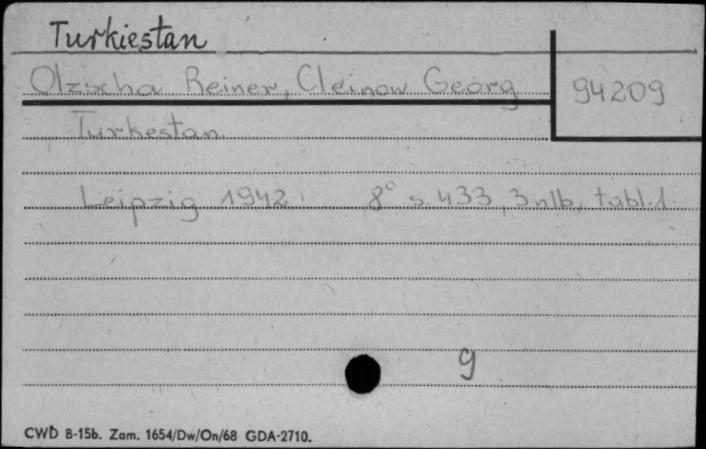 Turkiestan
Olzscha Reiner, Cleinow Georg
94209
Turkestan.
Leipzig 1942. 8° s. 433, 3 nlb, tabl. 1.
9
CWD B-15b. Zam. 1654/Dw/On/68 GDA-2710.